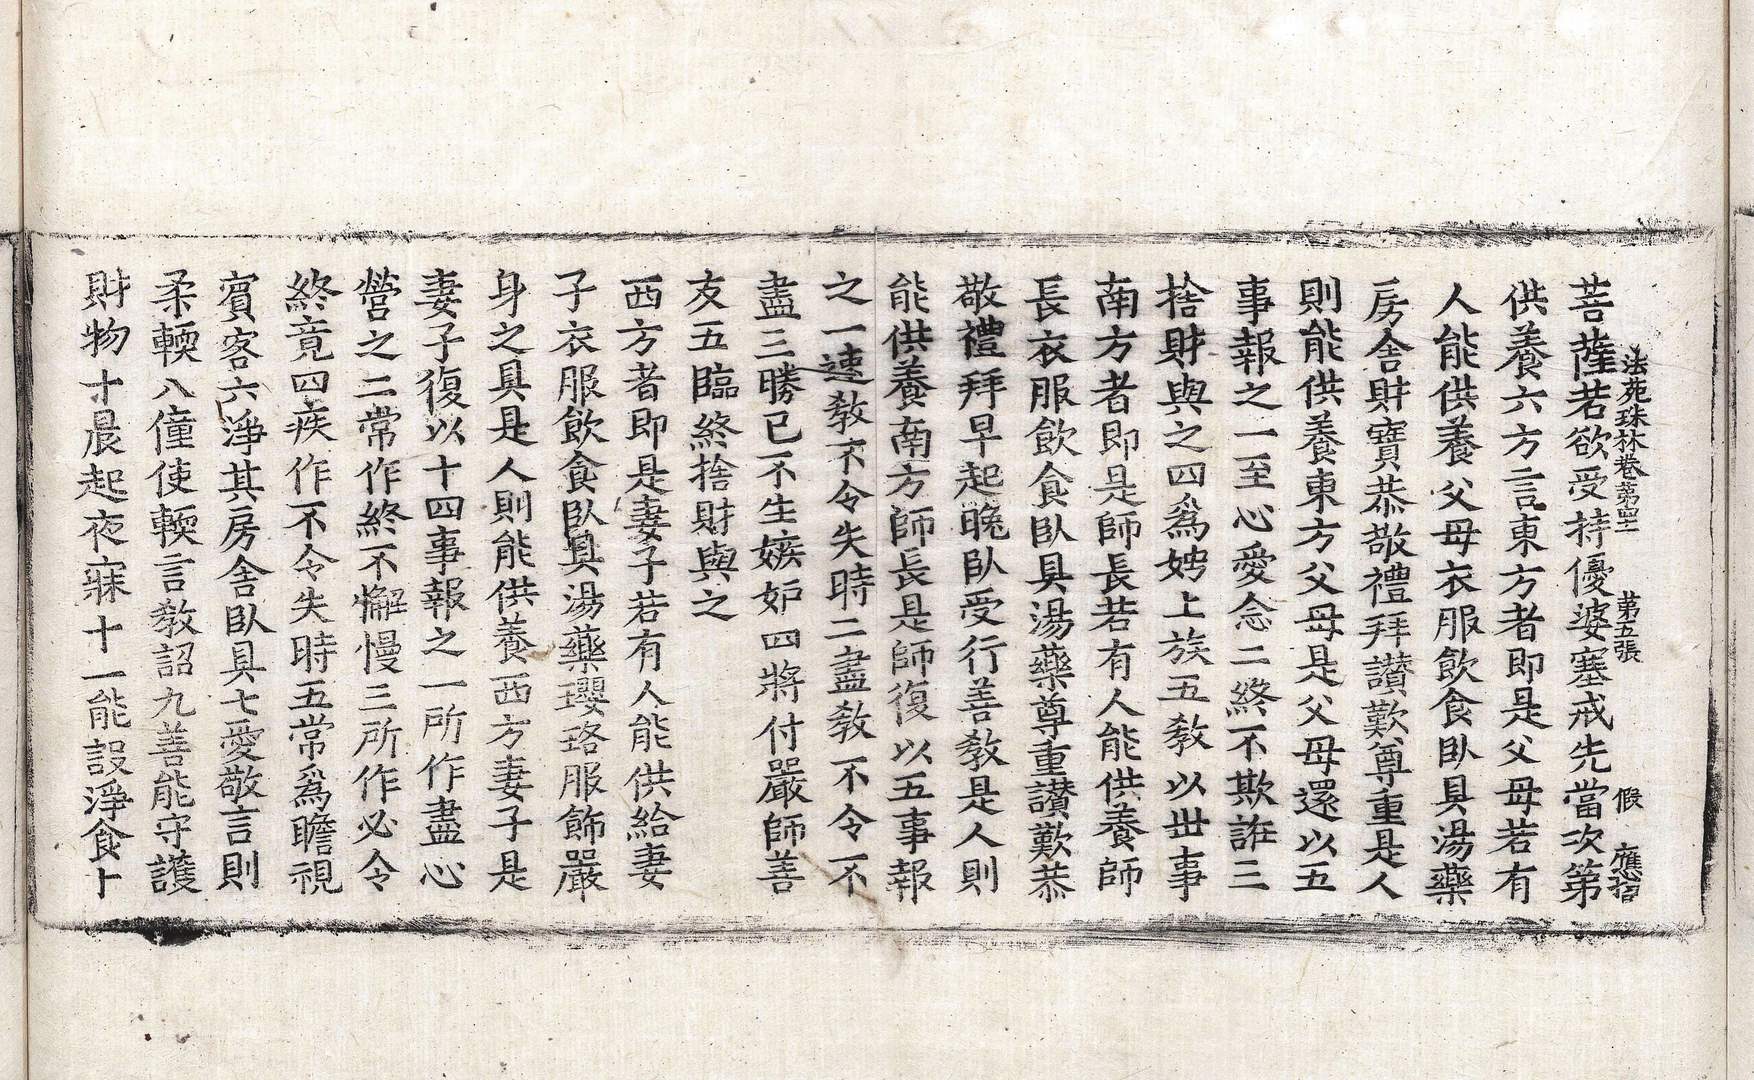 法苑珠林卷第 第五張 假 應信
菩薩若欲受持優婆塞戒先當次第
供養六方言東方者即是父母若有
人能供養父母衣服飲食臥具湯藥
房舍財寶恭敬禮拜讃歎尊重是人
則能供養東方父母是父母還以五
事報之一至心愛念二終不欺誑三
捨財與之四爲娉上族五教以世事
南方者即是師長若有人能供養師
長衣服飲食臥具湯藥尊重讃歎恭
敬禮拜早起晚臥受行善教是人則
能供養南方師長是師復以五事報
之一速教不令失時二盡教不令不
盡三勝已不生嫉妒四將付嚴師善
友五臨終捨財與之
西方者即是妻子若有人能供給妻
子衣服飲食臥具湯藥瓔珞服飾嚴
身之具是人則能供養西方妻子是
妻子復以十四事報之一所作盡心
營之二常作終不懈慢三所作必令
終竟四疾作不令失時五常爲瞻視
賓客六淨其房舍臥具七愛敬言則
柔輭八僮使輭言教詔九善能守護
財物十晨起夜寐十一能設淨食十